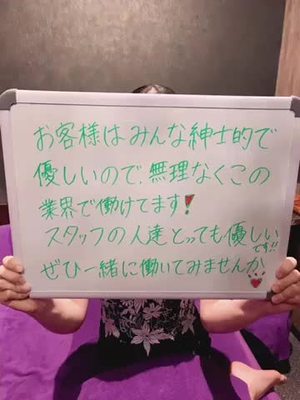 お客様はみんな紳士的で
優しいので、無理なくこの
業界で働けてます!
スタッフの人達とっても優しい
です!!
ぜひ一緒に働いてみませんか